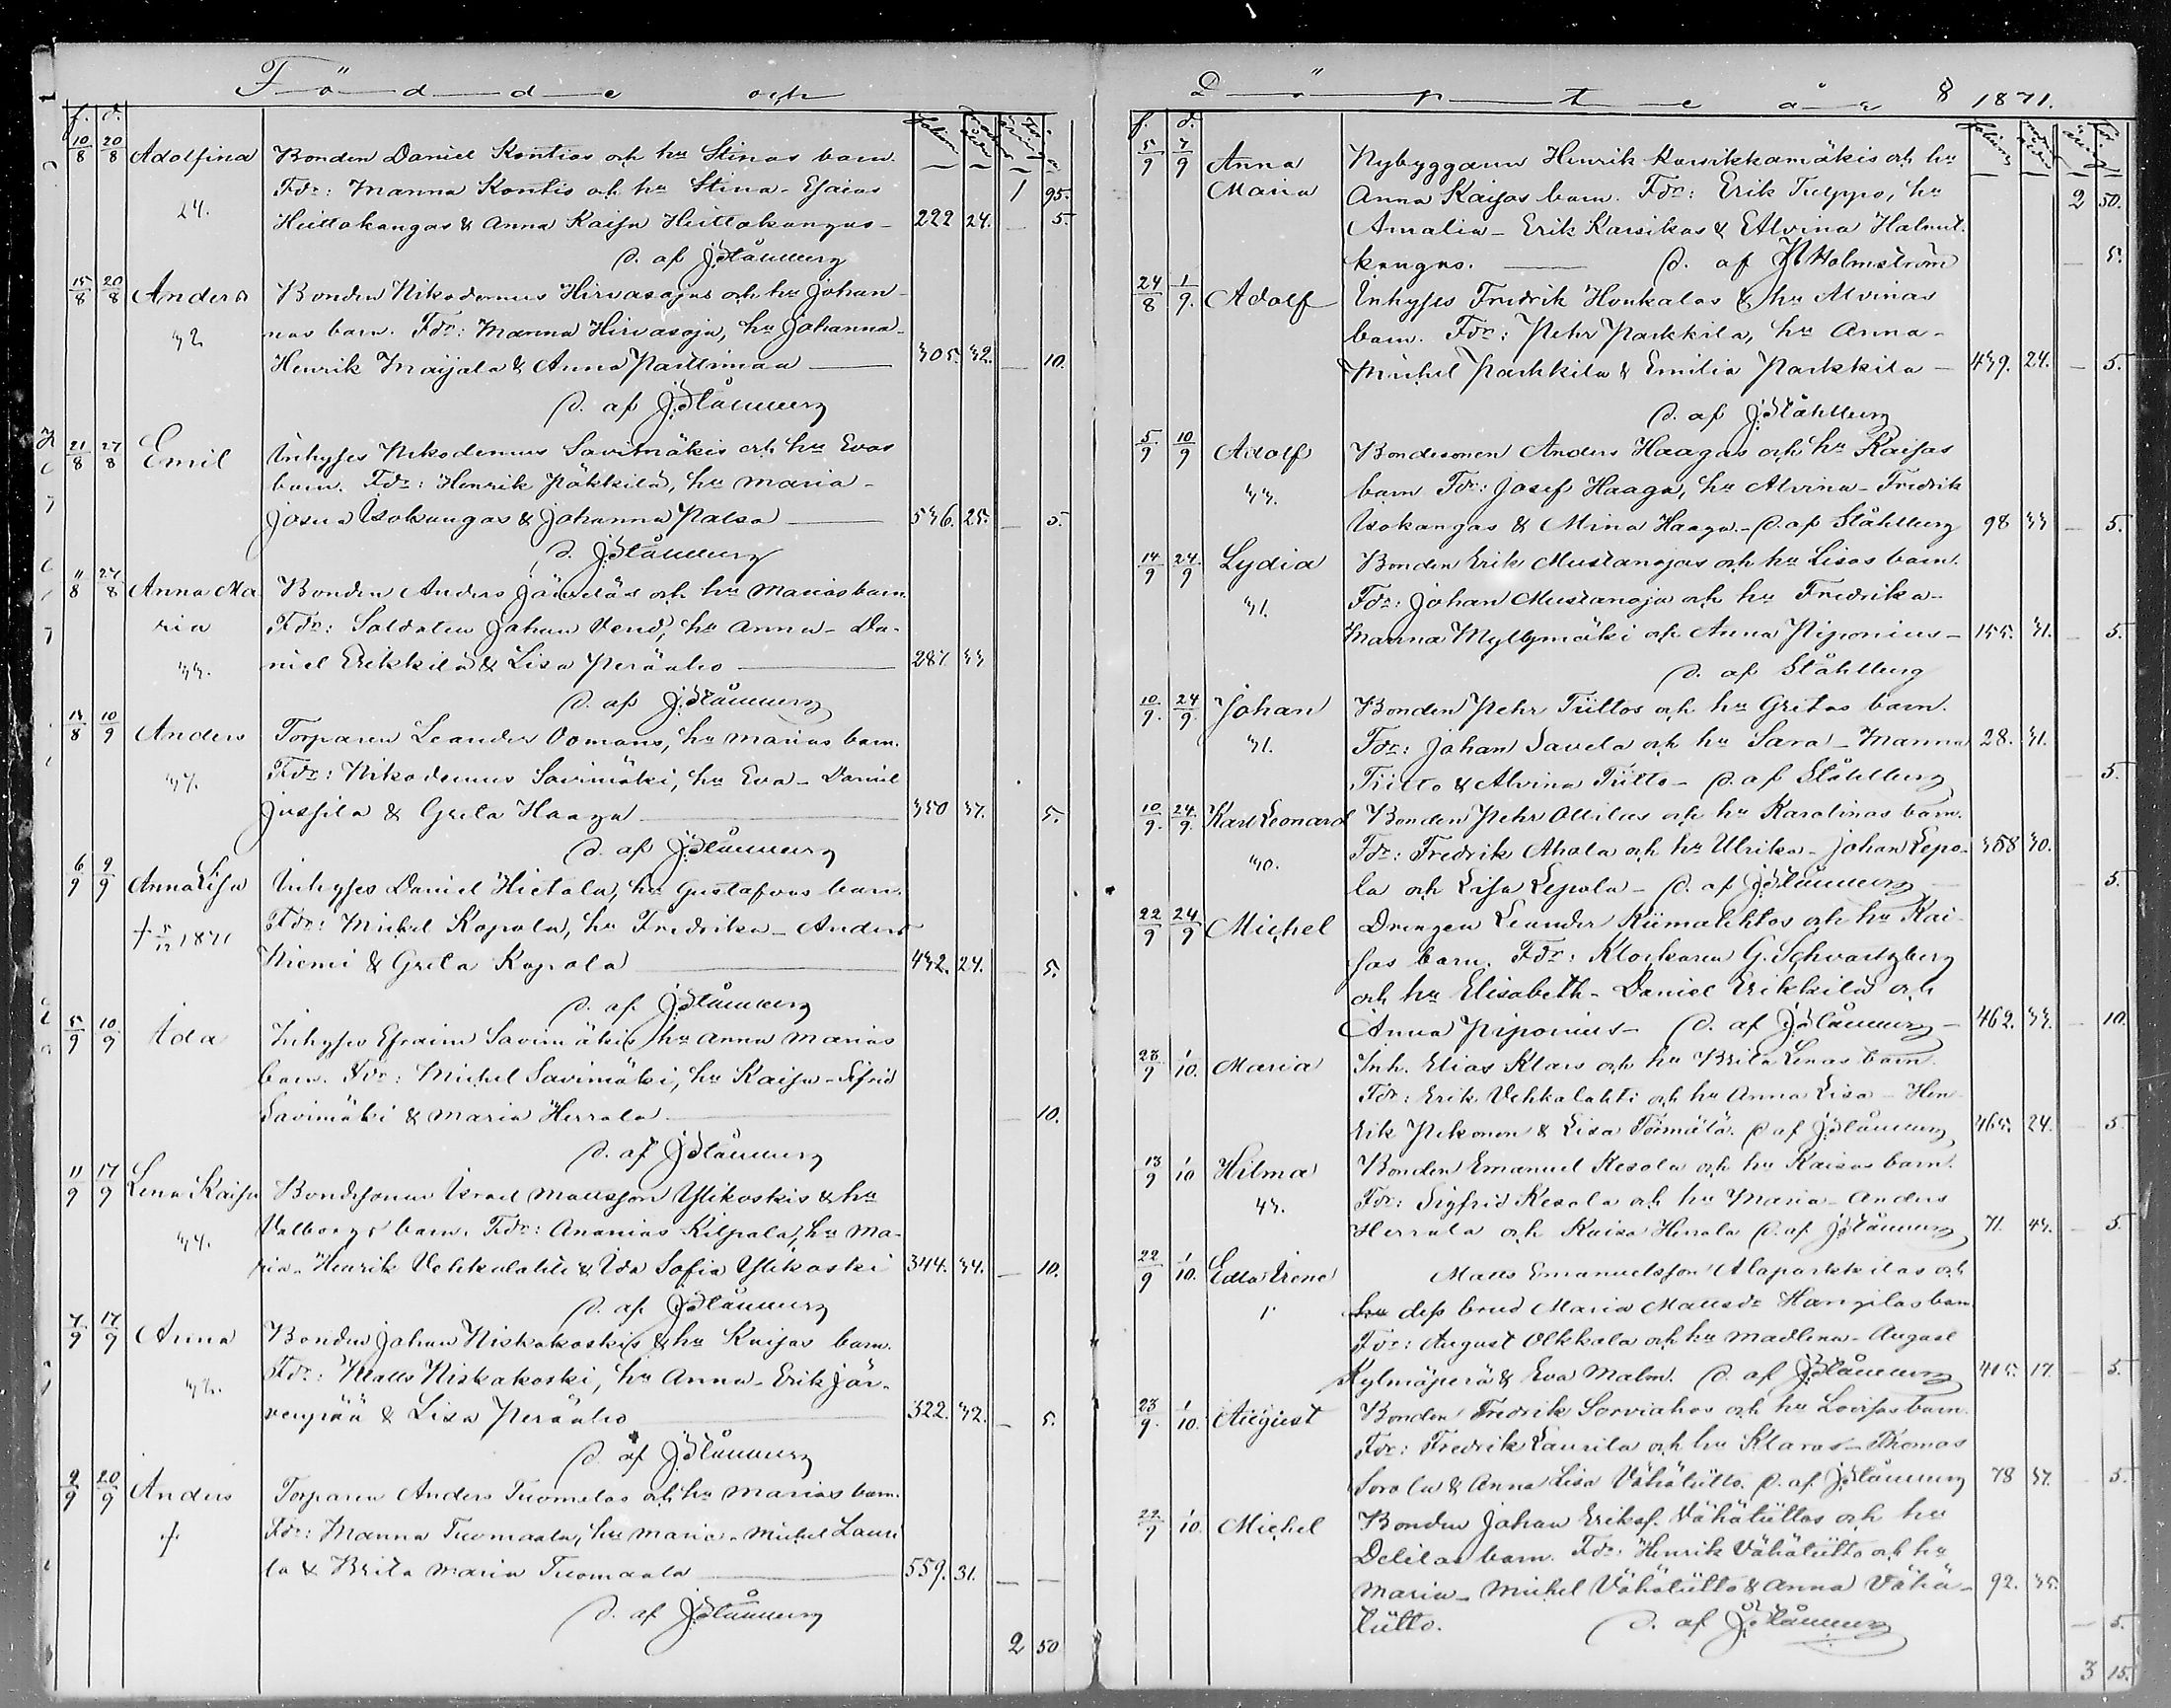 Födde och
f. d.
10/8 20/8 Adolfina Bonden Daniel Kontios och hu Stinas barn.
Fdr: Manna Kontio och hu Stina - Esaias 1 95.
24. Heittokangas & Anna Kaisa Heittokangas - 222 24. — 5.
D. af J. Ståhlberg
15/8 20/8 Anders Bonden Nikodemus Hirvasojas och hu Johan-
32 nas barn. Fdr: Manna Hirvasoja, hu Johanna -
Henrik Maijala & Anna Parttimaa — 305. 32. — 10.
D. af J. Ståhlberg
21/8 27/8 Emil Inhyses Nikodemus Savimäkis och hu Evas
barn. Fdr: Henrik Päkkilä, hu Maria -
Josua Isokangas & Johanna Palsa — 536. 25. — 5.
D. J. Ståhlberg
11/8 27/8 Anna Ma Bonden Anders Jämsäs och hu Marias barn
ria Fdr: Soldaten Johan Vend, hu Anna - Da-
33. niel Erikkilä & Lisa Peräaho — 287 33
D. af J. Ståhlberg
14/8 10/9 Anders Torparen Leander Oomans, hu Marias barn.
37. Fdr: Nikodemus Savimäki, hu Eva - Daniel
Jussila & Greta Haaga — 350 37. 5.
D. af J. Ståhlberg
6/9 9/9 Anna Lisa Inhyses Daniel Hietala, hu Gustafvas barn.
† 5/12 1871 Fdr: Michel Kopola, hu Fredrika - Anders
Niemi & Greta Kopola — 432. 24. — 5.
D. af J. Ståhlberg
5/9 10/9 Ada Inhyses Efraim Savimäkis, hu Anna Marias
barn. Fdr: Michel Savimäki, hu Kaisa - Sifrid
Savimäki & Maria Herrala — 10.
D. af J. Ståhlberg
11/9 17/9 Lena Kaisa Bondesonen Israel Mattsson Ylikoskis & hu
34. Valborgs barn. Fdr: Ananias Kilpala, hu Ma-
ria - Henrik Vehkalahti & Ida Sofia Ylikoski 344. 34. — 10.
D. af J. Ståhlberg
7/9 17/9 Anna Bonden Johan Niskakoskis & hu Kaisas barn.
32. Fdr: Matts Niskakoski, hu Anna - Erik Jär-
venpää & Lisa Peräaho — 322. 32. — 5.
D. af J. Ståhlberg
9/9 20/9 Anders Torparen Anders Tuomelas och hu Marias barn.
f. Fdr: Manna Tuomaala, hu Maria - Michel Lauri
la & Brita Maria Tuomaala — 559. 31. — —
D. af J. Ståhlberg
2 50
Döpte år 8 1871.
f. d.
5/9 7/9 Anna Nybyggaren Henrik Karsikkamäkis och hu
Maria Anna Kaisas barn. Fdr: Erik Tulppo, hu 2 50.
Amalia - Erik Karsikas & Alvina Halmet-
kangas. — D. af Holmström — 5.
24/8 1/9. Adolf Inhyses Fredrik Honkalas & hu Alvinas
barn. Fdr: Pehr Parkkila, hu Anna -
Michel Parkkila & Emilia Parkkila — 439. 24. — 5.
D. af J. Ståhlberg
5/9 10/9 Adolf Bondesonen Anders Haagas och hu Kaisas
33. barn Fdr: Josef Haaga, hu Alvina - Fredrik
Isokangas & Mina Haaga - D. af Ståhlberg 98 33 — 5.
14/9 24/9 Lydia Bonden Erik Mustanojas och hu Lisas barn.
31. Fdr: Johan Mustanoja och hu Fredrika -
Manna Myllymäki och Anna Piponius - 155. 31. — 5.
D. af Ståhlberg
10/9. 24/9. Johan Bonden Pehr Tiittos och hu Gretas barn.
31. Fdr: Johan Savela och hu Sara - Manna 28. 31.
Tiitto & Alvina Tiitto - D. af Ståhlberg — 5.
10/9. 24/9. Karl Leonard Bonden Pehr Ollilas och hu Karolinas barn.
30. Fdr: Fredrik Ahola och hu Ulrika - Johan Lepo- 358 30.
la och Lisa Lepola - D. af J. Ståhlberg — 5.
22/9 24/9 Michel Drengen Leander Kiimalehtos och hu Kai-
sas barn. Fdr: Klockaren G. Schvartzberg
och hu Elisabeth - Daniel Erikkilä och
Anna Piponius - D. af J. Ståhlberg - 462. 33. — 10.
23/9 1/10. Maria Inh. Elias Klars och hu Brita Lenas barn
Fdr: Erik Vehkalahti och hu Anna Lisa - Hen
rik Pekonen & Lisa Törmälä. D. af J. Ståhlberg 465. 24. — 5.
13/9 1/10 Hilma Bonden Emanuel Kesola och hu Kaisas barn.
43. Fdr: Sigfrid Kesola och hu Maria - Anders
Herrala och Kaisa Herrala D. af J. Ståhlberg 71. 43. — 5.
22/9 1/10. Edla Irene Matts Emanuelsson Alaparkkilas och
hu dess brud Maria Mattsdr Hangilas barn
Fdr: August Olkkola och hu Madlena - August
Kylmäperä & Eva Malm. D. af J. Ståhlberg 415. 17. — 5.
23/9. 1/10. August Bonden Fredrik Sorviahos och hu Lovisas barn.
Fdr: Fredrik Laurila och hu Klaras - Thomas
Sorola & Anna Lisa Vähätiitto. D. af J. Ståhlberg 78 37. 5.
22/9 1/10. Michel Bonden Johan Eriks. Vähätiittos och hu
Delilas barn. Fdr: Henrik Vähätiitto och hu
Maria - Michel Vähätiitto & Anna Vähä- 92. 35.
tiitto. D. af J. Ståhlberg — 5.
3 15.